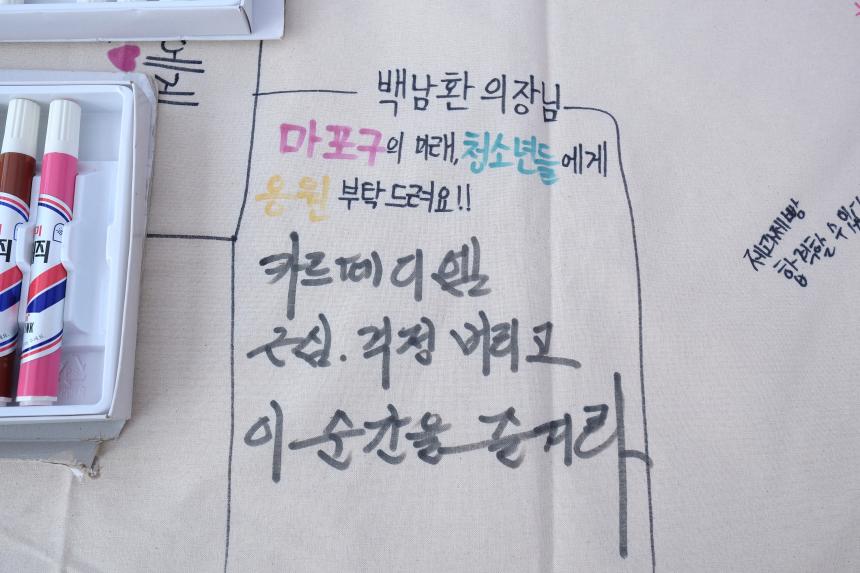 백남환 의장님
마포구의 미래, 청소년들에게
응원 부탁드려요!!
카르페 디엠
근심. 걱정 버리고
이 순간을 즐겨라
제과제빵
합격할 수 있